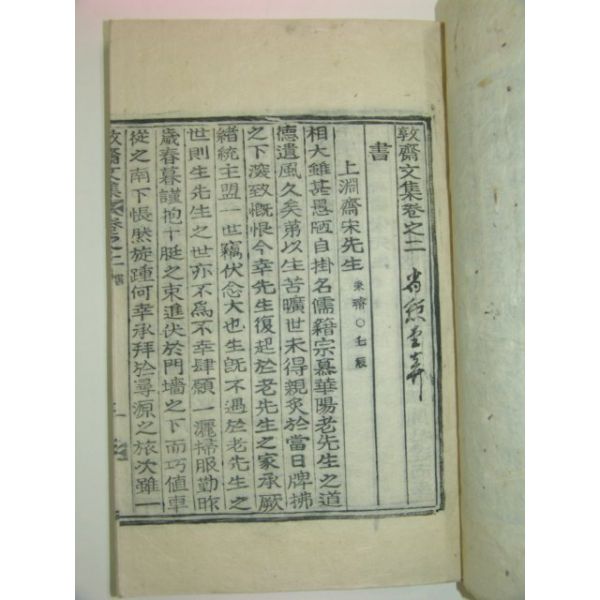 敦齋文集卷之二
書
上淵齋宋先生 秉璿○壬辰
相大錐甚愚陋自掛名儒籍宗慕華陽老先生之道
德遺風久矣弟以生苦曠世未得親炙於當日牌拂
之下深致慨恨今幸先生復起於老先生之家承厥
緖統主盟一竊伏念大也生旣不遇於老先生之
世則生先生之世亦不爲不幸肆願一灑掃服勤昨
歲春暮謹抱十脡之束進伏於門墻之下而巧値車
從之南下悵然旋踵何幸承拜於尋源之旅次雖一
敦齋文集 卷之二 書